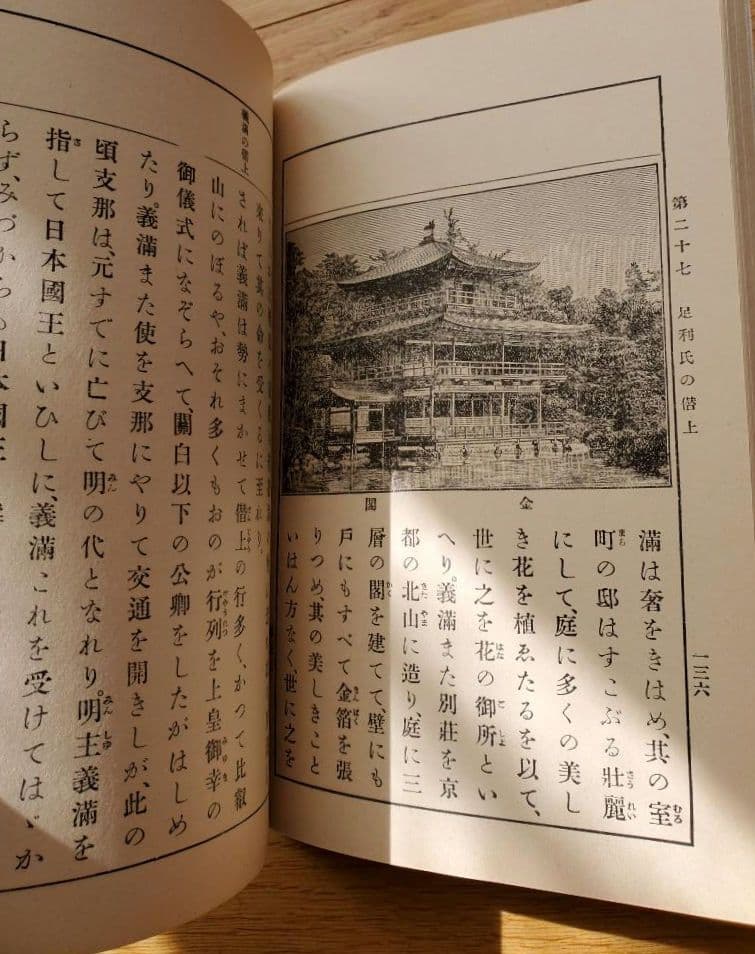 第二十七 足利氏の僭上
一三六
金閣
滿は奢をきはめ、其の室
町の邸はすこぶる壯麗
にして、庭に多くの美し
き花を植ゑたるを以て、
世に之を花の御所とい
へり。義滿また別莊を京
都の北山に造り、庭に三
層の閣を建てて、壁にも
戸にもすべて金箔を張
りつめ、其の美しきこと
いはん方なく、世に之を
義滿の僭上
來りて其の命を受くるに至れり。
されば義滿は勢にまかせて僭上の行多く、かつて比叡
山にのぼるや、おそれ多くもおのが行列を上皇御幸の
御儀式になぞらへて、關白以下の公卿をしたがはしめ
たり。義滿また使を支那にやりて交通を開きしが、此の
頃支那は、元すでに亡びて明の代となれり。明主義滿を
指して日本國王といひしに、義滿これを受けてはゞか
らず、みづからも日本國王